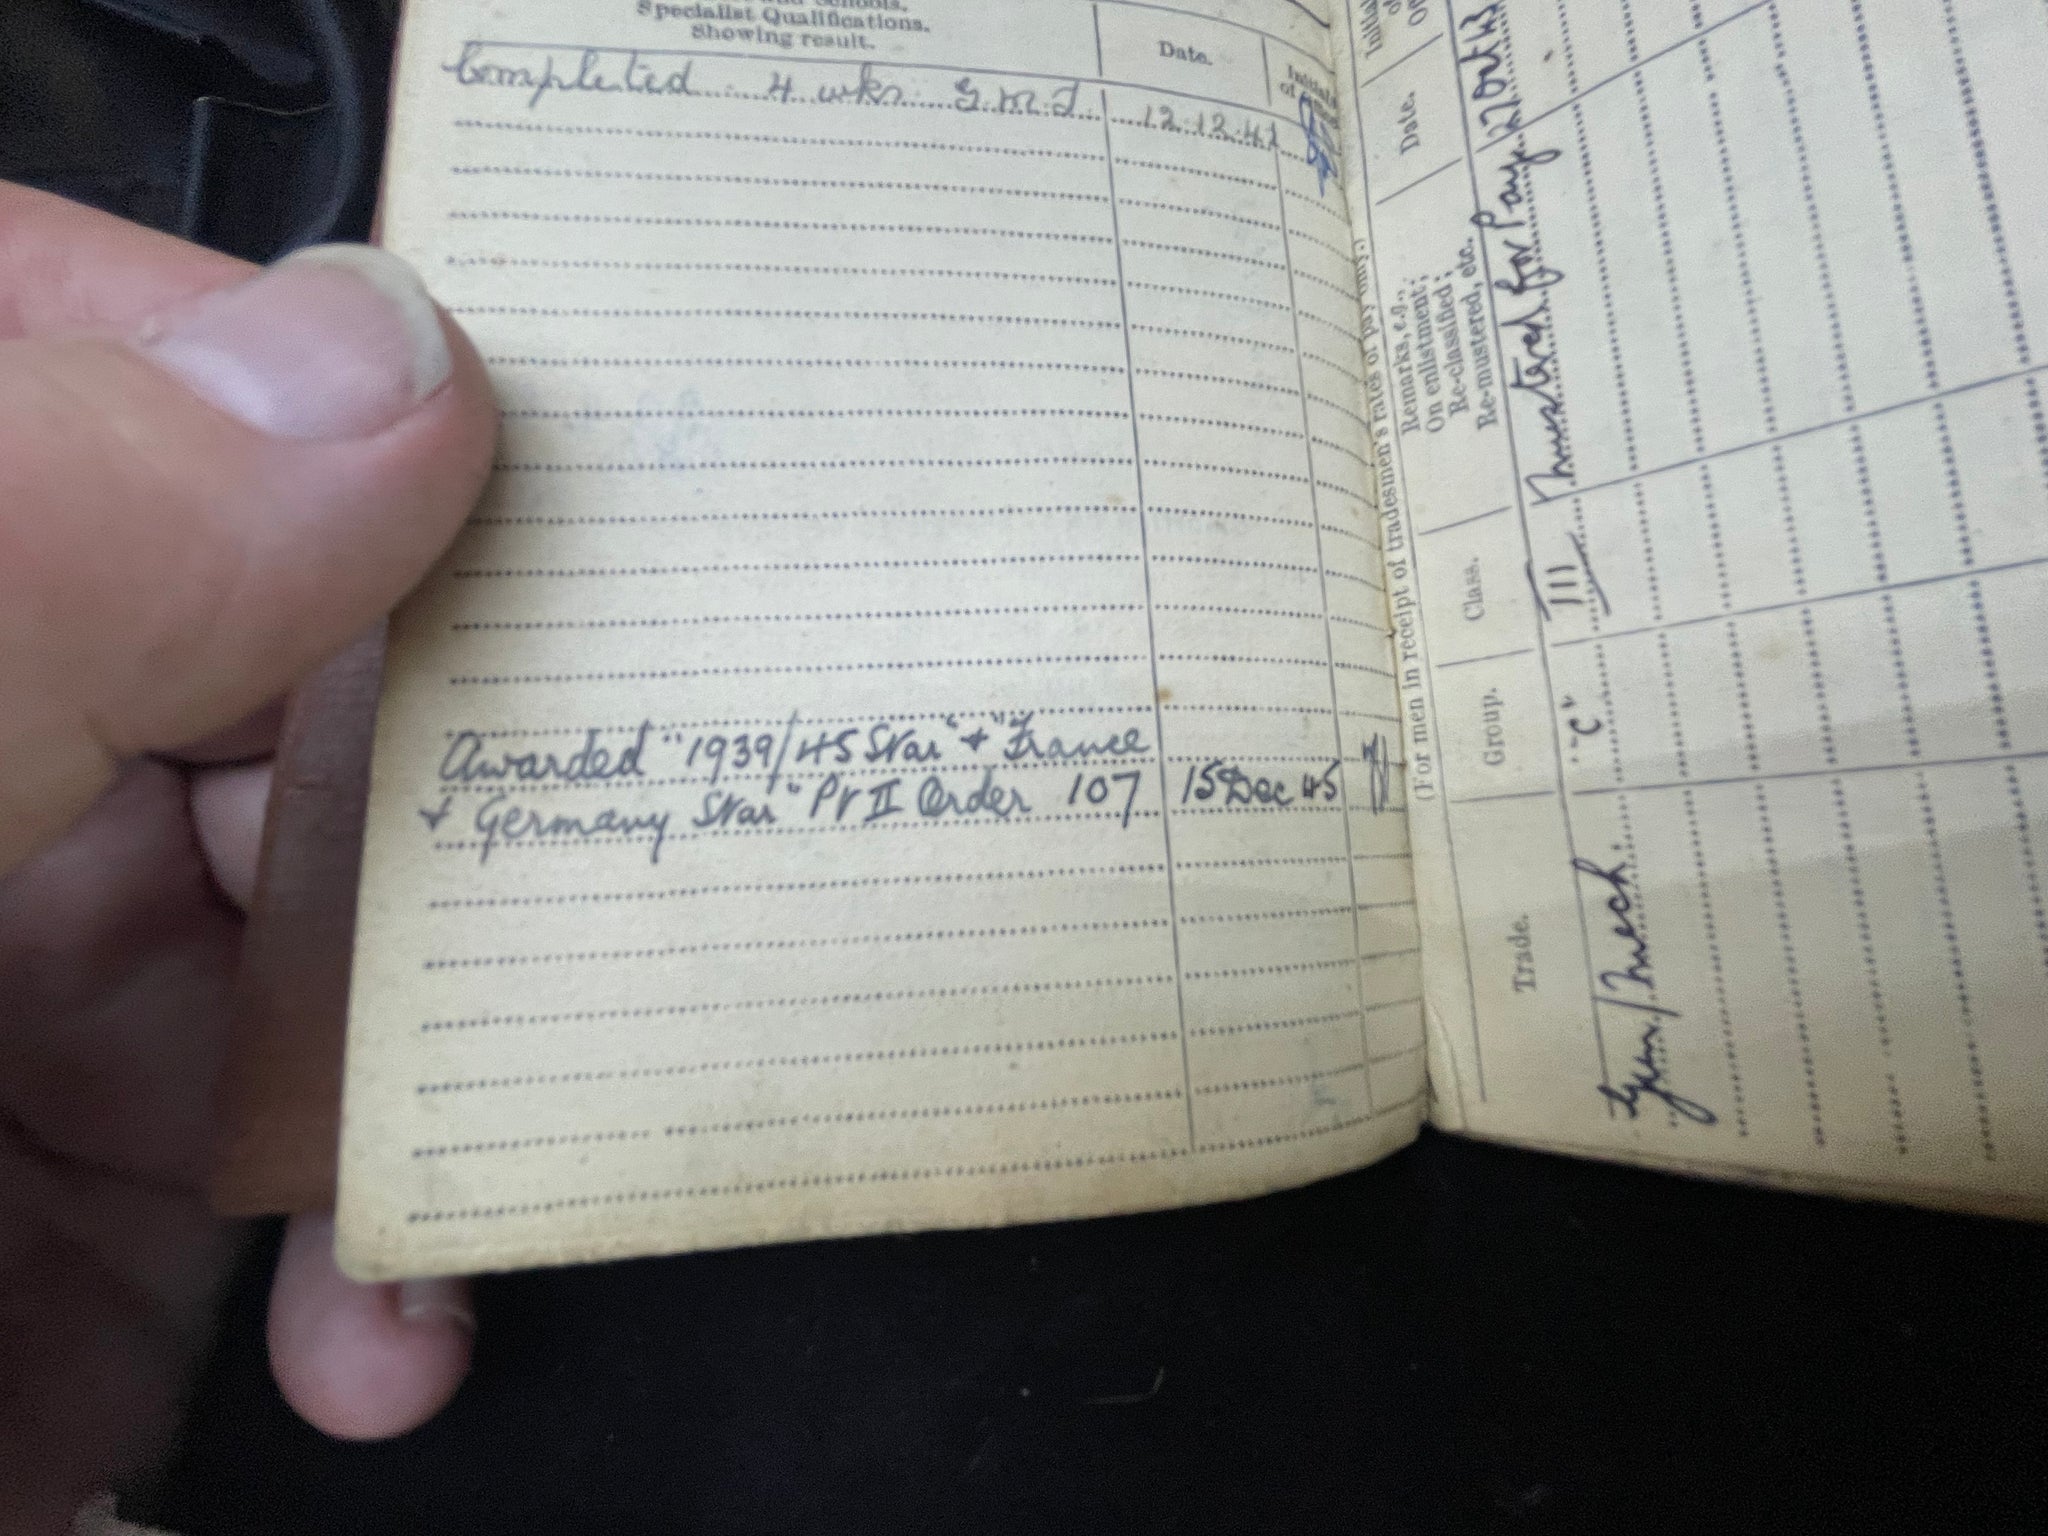 and Schools.
Specialist Qualifications.
Showing result.
Date.
Initials
of
Completed 4 wks G.M.T. 12.12.41
Awarded "1939/45 Star" & "France
& Germany Star" Pt II Order 107 15 Dec 45
(For men in receipt of tradesmen's rates of pay only.)
Trade.
Group.
Class.
Remarks, e.g.,
On enlistment;
Re-classified;
Re-mustered, etc.
Date.
Gun/Mech. "C" III Mustered for Pay